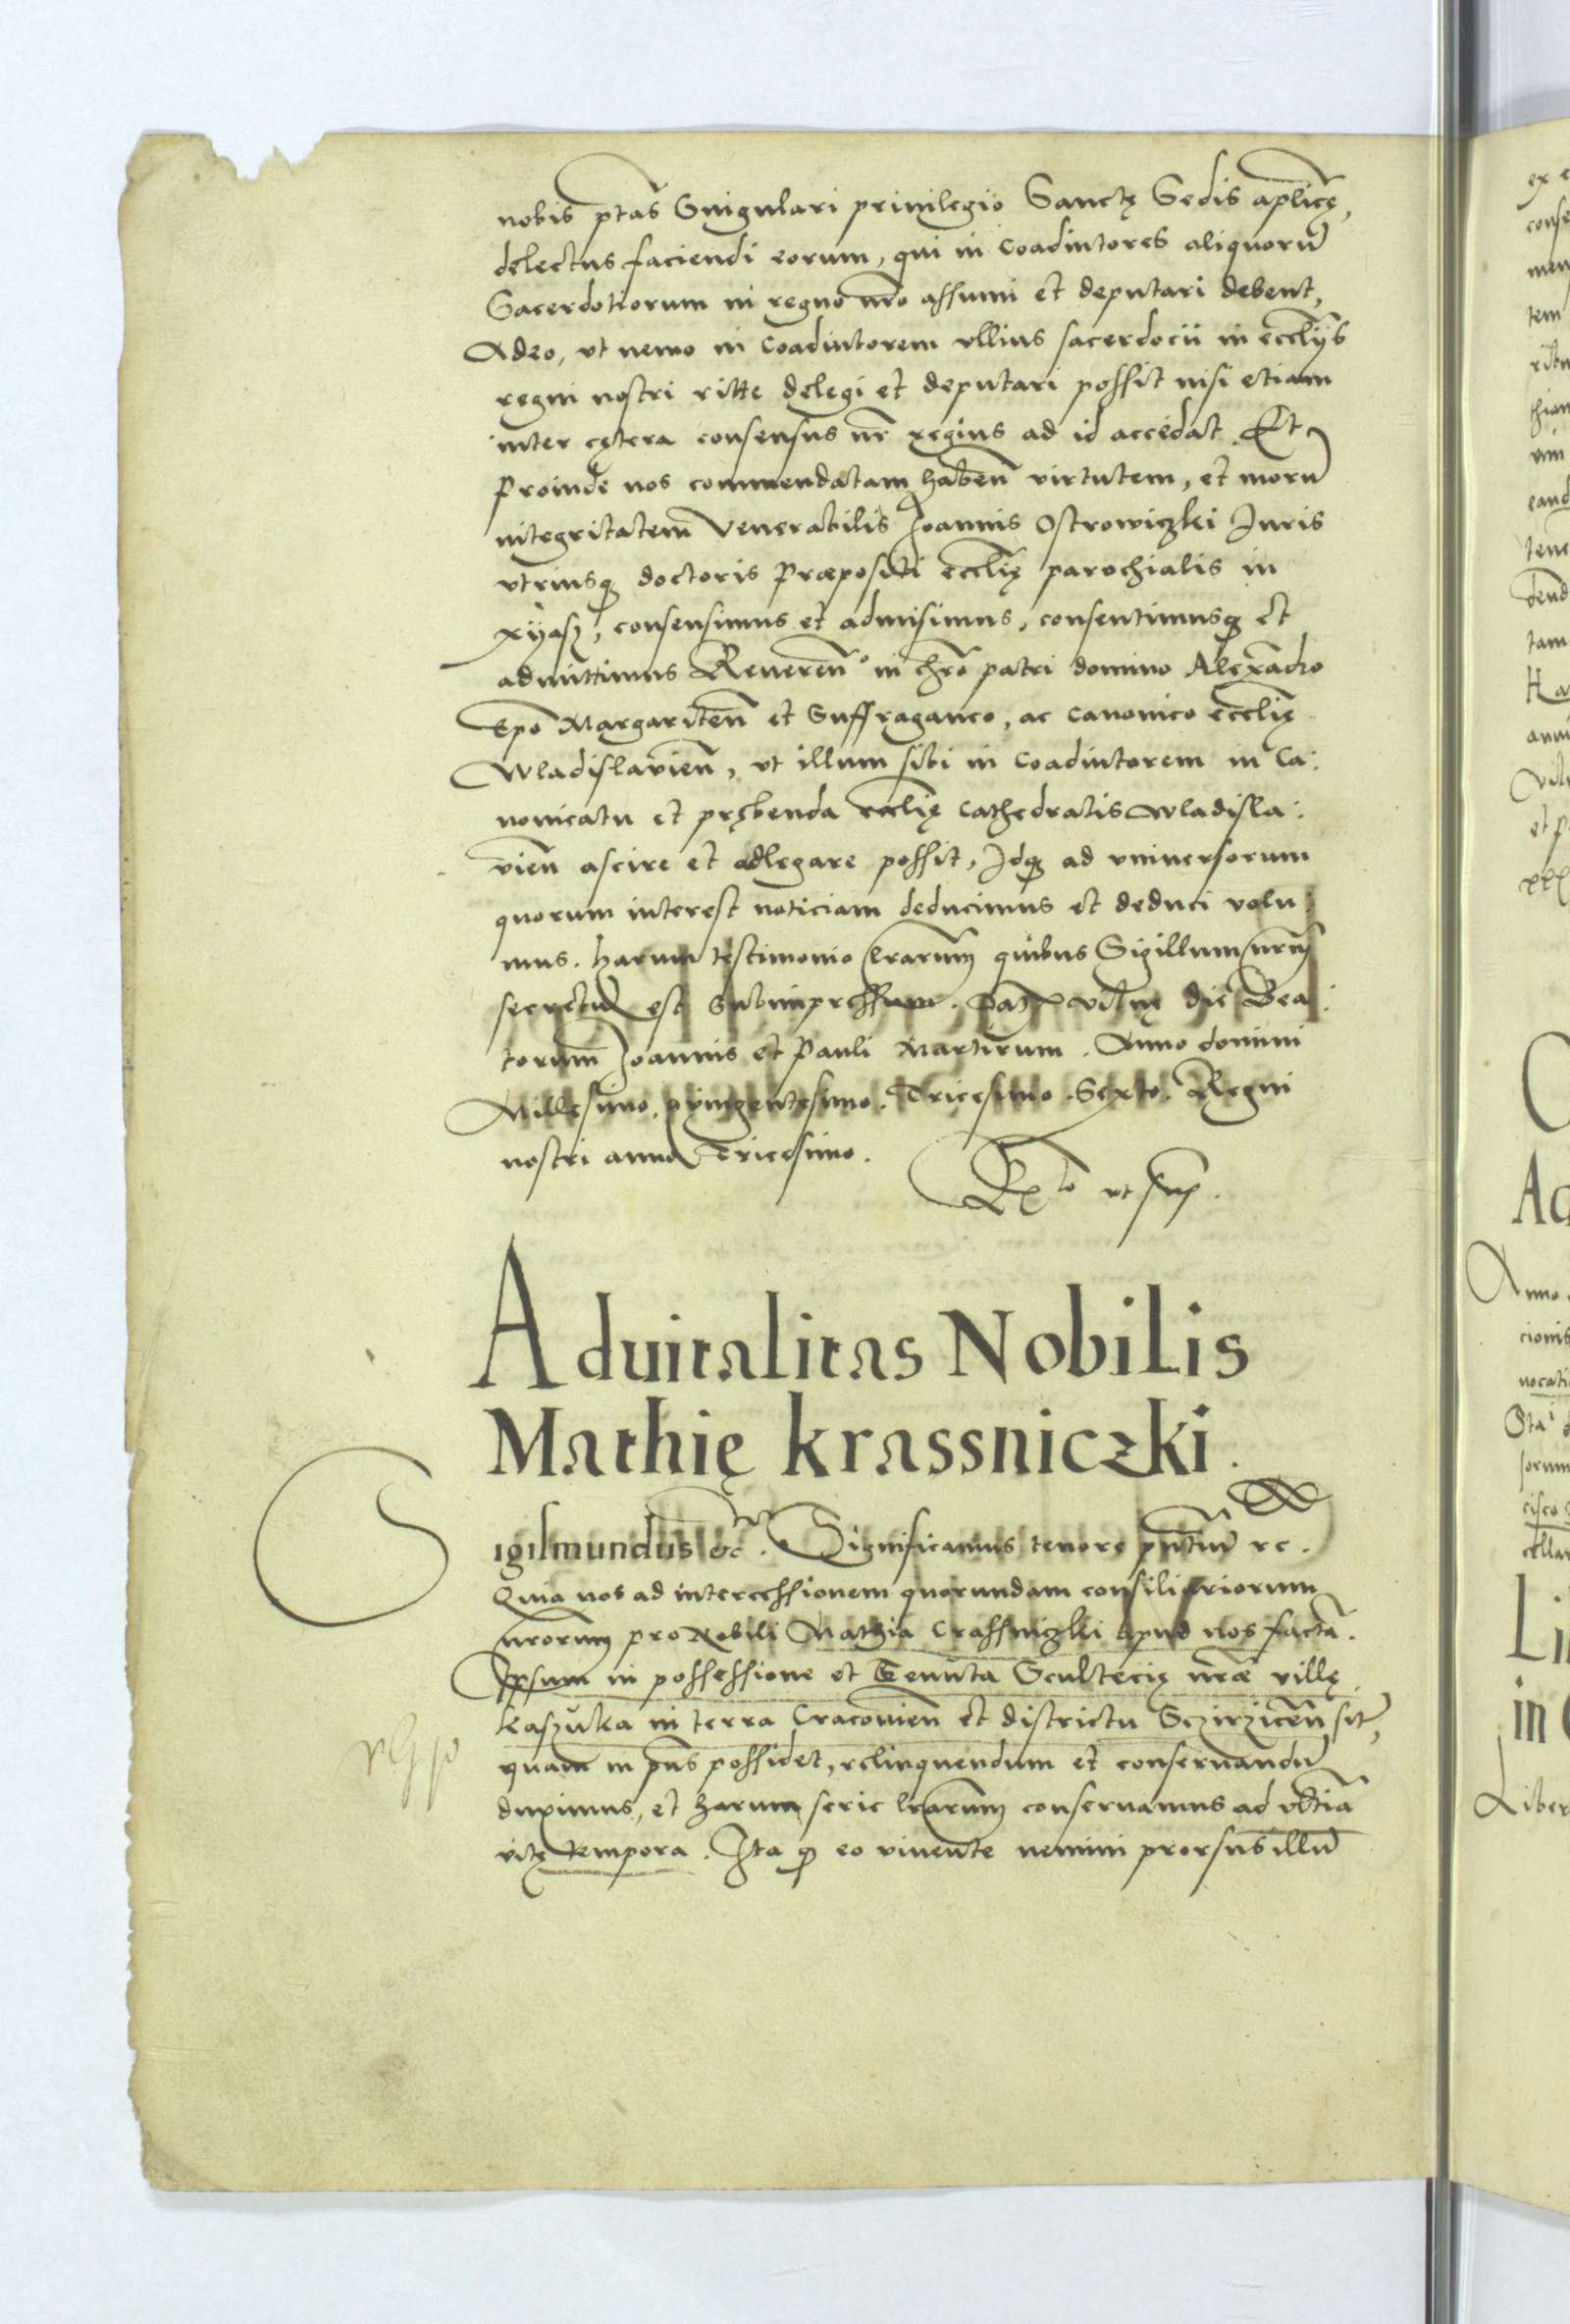 nobis ptas Singulari priuilegio Sanctę Sedis aplicę,
delectus faciendi eorum, qui in Coadiutores aliquorū
Sacerdotiorum in regno nro assumi et deputari debent,
Adeo, vt nemo in Coadiutorem vllius sacerdocii in eccliis
regni nostri ritte delegi et deputari possit nisi etiam
inter cętera consensus nr regius ad id accedat. Et
Proinde nos commendatam haben virtutem, et morū
integritatem Venerabilis Joannis Ostrowiczki Juris
vtriusq doctoris Præpositi ecclię parochialis in
xyasz, consensimus et admisimus, consentimusq et
admittimus Reueren° in chro patri domino Alexādro
Epo Margariten et Suffraganeo, ac Canonico ecclię
Wladislauien, vt illum sibi in Coadiutorem in Ca:
nonicatu et prębenda ecclię Cathedralis Wladisla:
uien ascire et adlegare possit, Idq ad vniuersorum
quorum interest noticiam deducimus et deduci volu:
mus. harum testimonio lrarum quibus Sigillum nrm
secretū est Subimpressum. Dat Vilnę die Bea:
torum Joannis et Pauli Martirum. Anno domini
Millesimo, quingentesimo. Tricesimo. Sexto. Regni
nostri anno Tricesimo.
Rto vt sup.
Aduitalitas Nobilis
Mathię krassniczki.
Sigismundus &c. Significamus tenore pntiū rc.
Quia nos ad intercessionem quorundam consiliariorum
nrorum pro Nobili Mathia Crassniczki apud nos factā.
Ipsum in possessione et Tenuta Scultecię nræ villę
kaszuka in terra Cracouien et districtu Sczirzicen sit,
quam in pns possidet, relinquendum et conseruandū
duximus, et harum serie lrarum conseruamus ad vltia
vitę tempora. Ita q eo viuente nemini prorsus illū